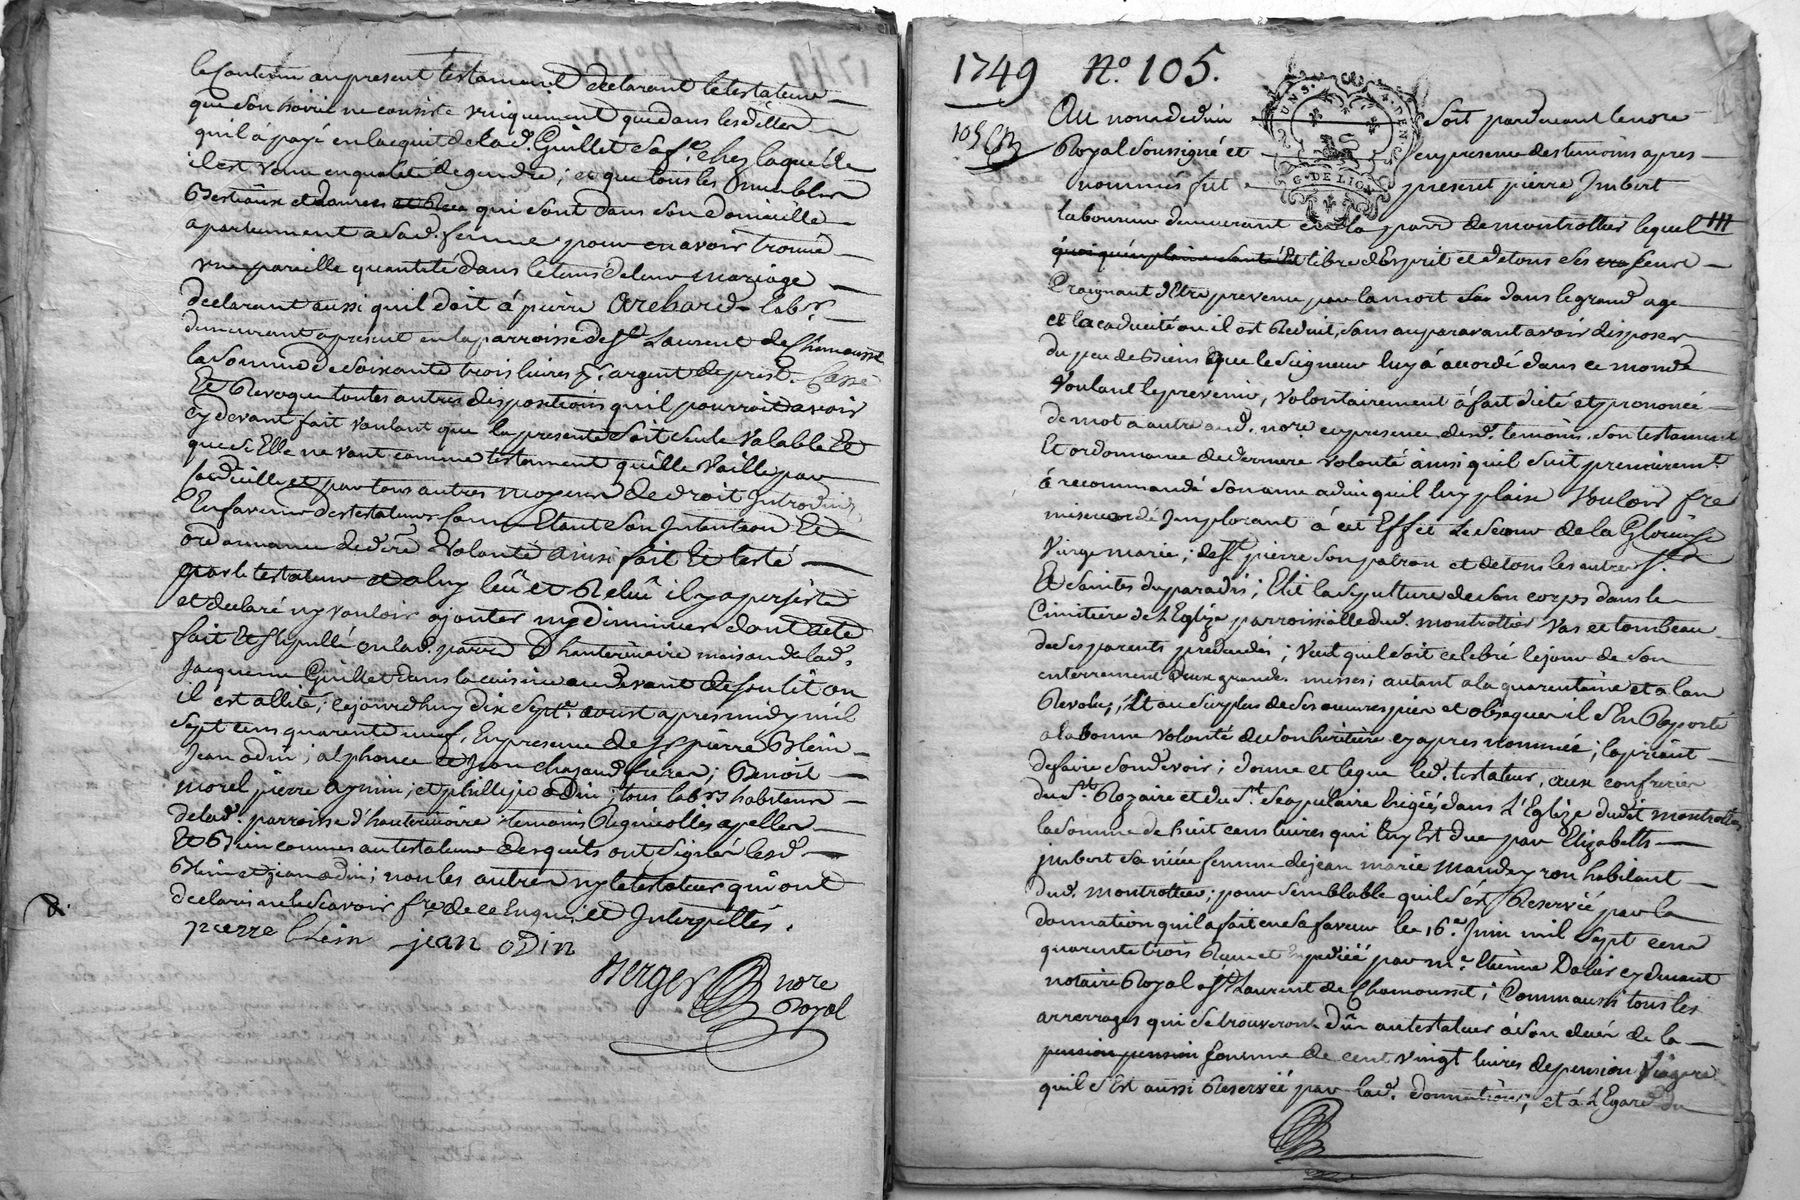 le contenu au present testament declarant le testateur
que son hoirie ne consiste uniquement que dans les dettes
qu'il à payé en l'acquit de lad. Guillet sa fe. chez laquelle
il est venu en qualité de gendre; et que tous les meubles
Bestiaux et danrées qui sont dans son domicille
apartiennent a sad. femme pour en avoir trouvé
une pareille quantité dans le tems de leur mariage
declarant aussi quil doit à pierre Orchard labr.
demeurant a present en la parroisse de St. Laurent de Chamousset
la somme de soixante trois livres pr. argent de prest. Casse
Et Revoque toutes autres dispositions quil pourroit avoir
cy devant fait voulant que la presente soit seule valable Et
que si Elle ne vaut comme testament qu'elle vaille par
codicille et par tous autres moyens de droit Introduits
En faveur des testateurs Car Etant son Intention Et
ordonnance de dre. volonté ainsi fait Et testé
par le testateur et a luy leû et Relû il y a persisté
et declaré ny vouloir ajouter ny diminuer dont acte
fait Et Stipullé en lad. parre. D'hauterivoire maison de lad.
Jacqueme Guillet dans la cuisine au devant de son lit ou
il est allité; cejourdhuy dix septe. aoust apres midy mil
sept cens quarente neuf, En presence de Sr pierre Blein
Jean odin; alphonce et Jean chazaud freres; Benoît
morel pierre Aynin; et phillipe odin; tous labrs. habitans
de lad. parroisse d'hauterivoire temoins Requis et appellés
Et Bien connus au testateur desquels ont signés lesd.
Blein et jean odin; non les autres ny le testateur qui ont
declaré ne le scavoir fre. de ce Enquis et Interpellés.
pierre blein jean odin
Berger nore
Royal
1749 No. 105.
105
UNS. 4. DEN
G. DE LION
Au nom de dieu soit pardevant le nore
Royal soussigné et en presence des temoins apres
nommés fut present pierre Imbert
laboureur demeurant en la parre de montrottier lequel
quoiqu'en plaine santé Et libre d'Esprit et de tous ses sens
Craignant d'Etre prevenu par la mort dans le grand age
et la caducité ou il est Reduit, sans auparavant avoir disposer
du peu de Biens que le Seigneur luy à accordé dans ce monde
voulant le prevenir, volontairement à fait dicté et prononcé
de mot a autre aud. nore. en presence desd. temoins son testament
Et ordonnance de derniere volonté ainsi quil suit premierement.
à recommandé son ame a dieu quil luy plaise vouloir fre
misericorde Implorant à cet Effet Le Secour de la Glorieuse
Vierge marie; de St. pierre son patron et de tous les autres Sts.
Et saintes du paradis; Elit la sepulture de son corps dans le
Cimitiere de l'Eglize parroissialle dud. montrottier Vas et tombeau
de ses parents predecedés; veut quil soit celebré le jour de son
enterrement deux grandes messes; autant a la quarentaine et a lan
Revolu; Et au surplus de ses œuvres pies et obseques il s'En Raporte
a la bonne volonté de son heritiere cy apres nommée; la priant
de faire son devoir; donne et legue led. testateur, aux confreries
du St. Rozaire et du St. Scapulaire Erigées, dans l'Eglize dudit montrottier
la somme de huit cens livres qui luy Est due par Elizabeth
jmbert sa niéce femme de jean marie mandeyron habitant
dud. montrottier; pour semblable quil s'est Reservée par la
donnation quil a fait en sa faveur le 16e. Juin mil sept cens
quarente trois Reçue et Expediée par me. Etienne Dalier cy devant
notaire Royal à St. Laurent de Chamousset; Comm'aussi tous les
arrerrages qui se trouveront dûs au testateur à son decés de la
pension de cent vingt livres de pension viagere
quil s'Est aussi Reservée par lad. donnation; et à l'Egard du